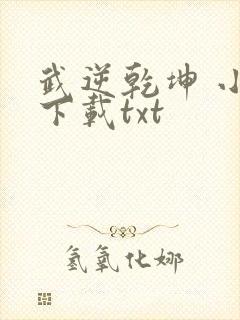 武逆乾坤 小
下载txt
氢氧化娜